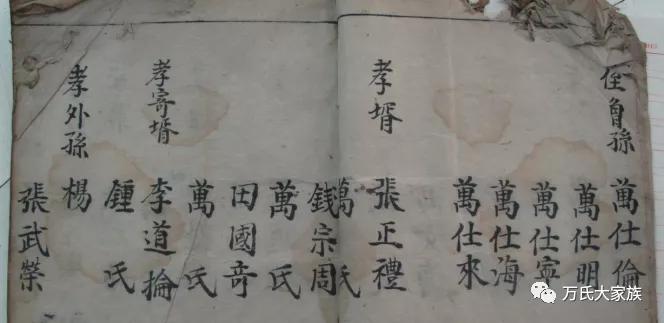 侄曾孫
萬仕倫
萬仕明
萬仕寧
萬仕海
萬仕來
孝壻
張正禮
萬氏
錢宗周
萬氏
田國奇
萬氏
孝寄壻
李道掄
鍾氏
孝外孫
楊
張武榮
万氏大家族